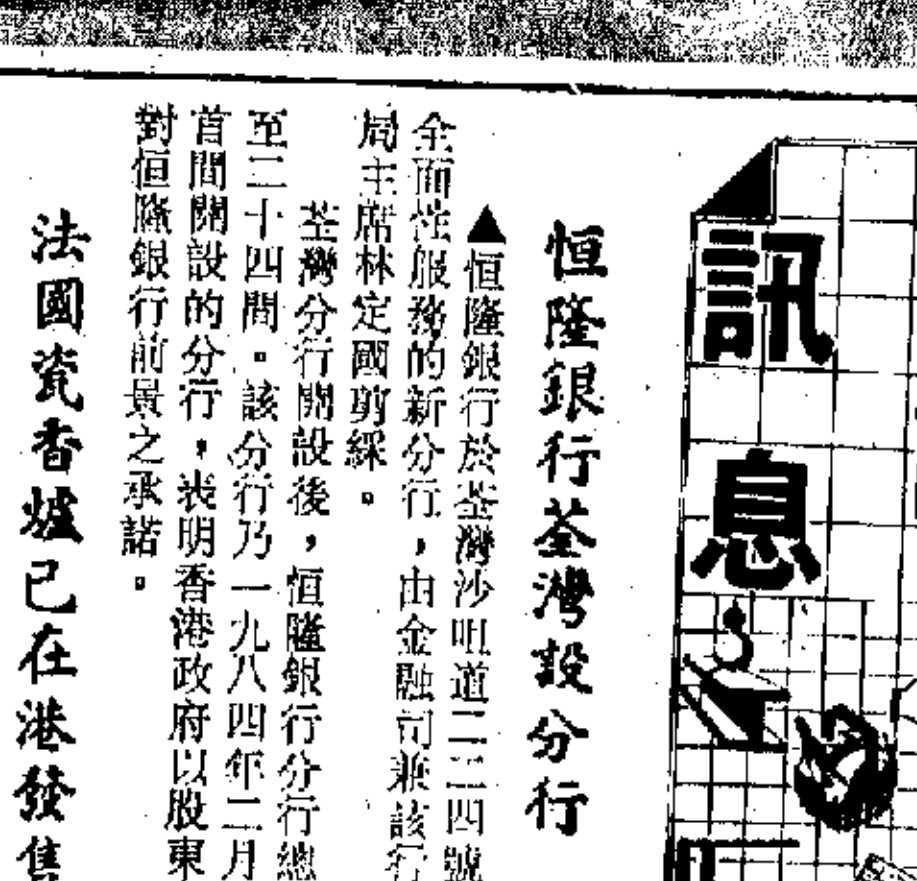 訊息
恒隆銀行荃灣設分行
▲恒隆銀行於荃灣沙咀道二二四號
全面性服務的新分行，由金融司兼該行
局主席林定國剪綵。
荃灣分行開設後，恒隆銀行分行總
至二十四間。該分行乃一九八四年二月
首間開設的分行，表明香港政府以股東
對恒隆銀行前景之承諾。
法國瓷香爐已在港發售